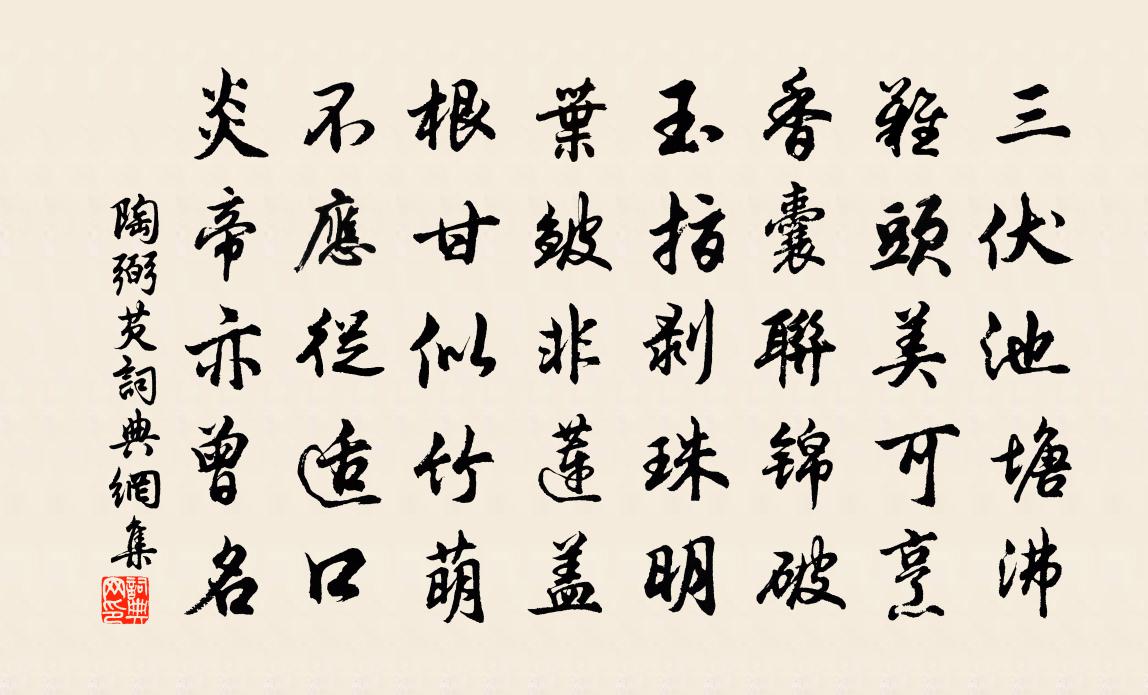 三伏池塘沸
雞頭美可烹
香囊聯锦破
玉指剥珠明
葉皺非蓮盖
根甘似竹萌
不應從适口
炎帝亦曾名
陶弼芡詞典網集
詞典网印